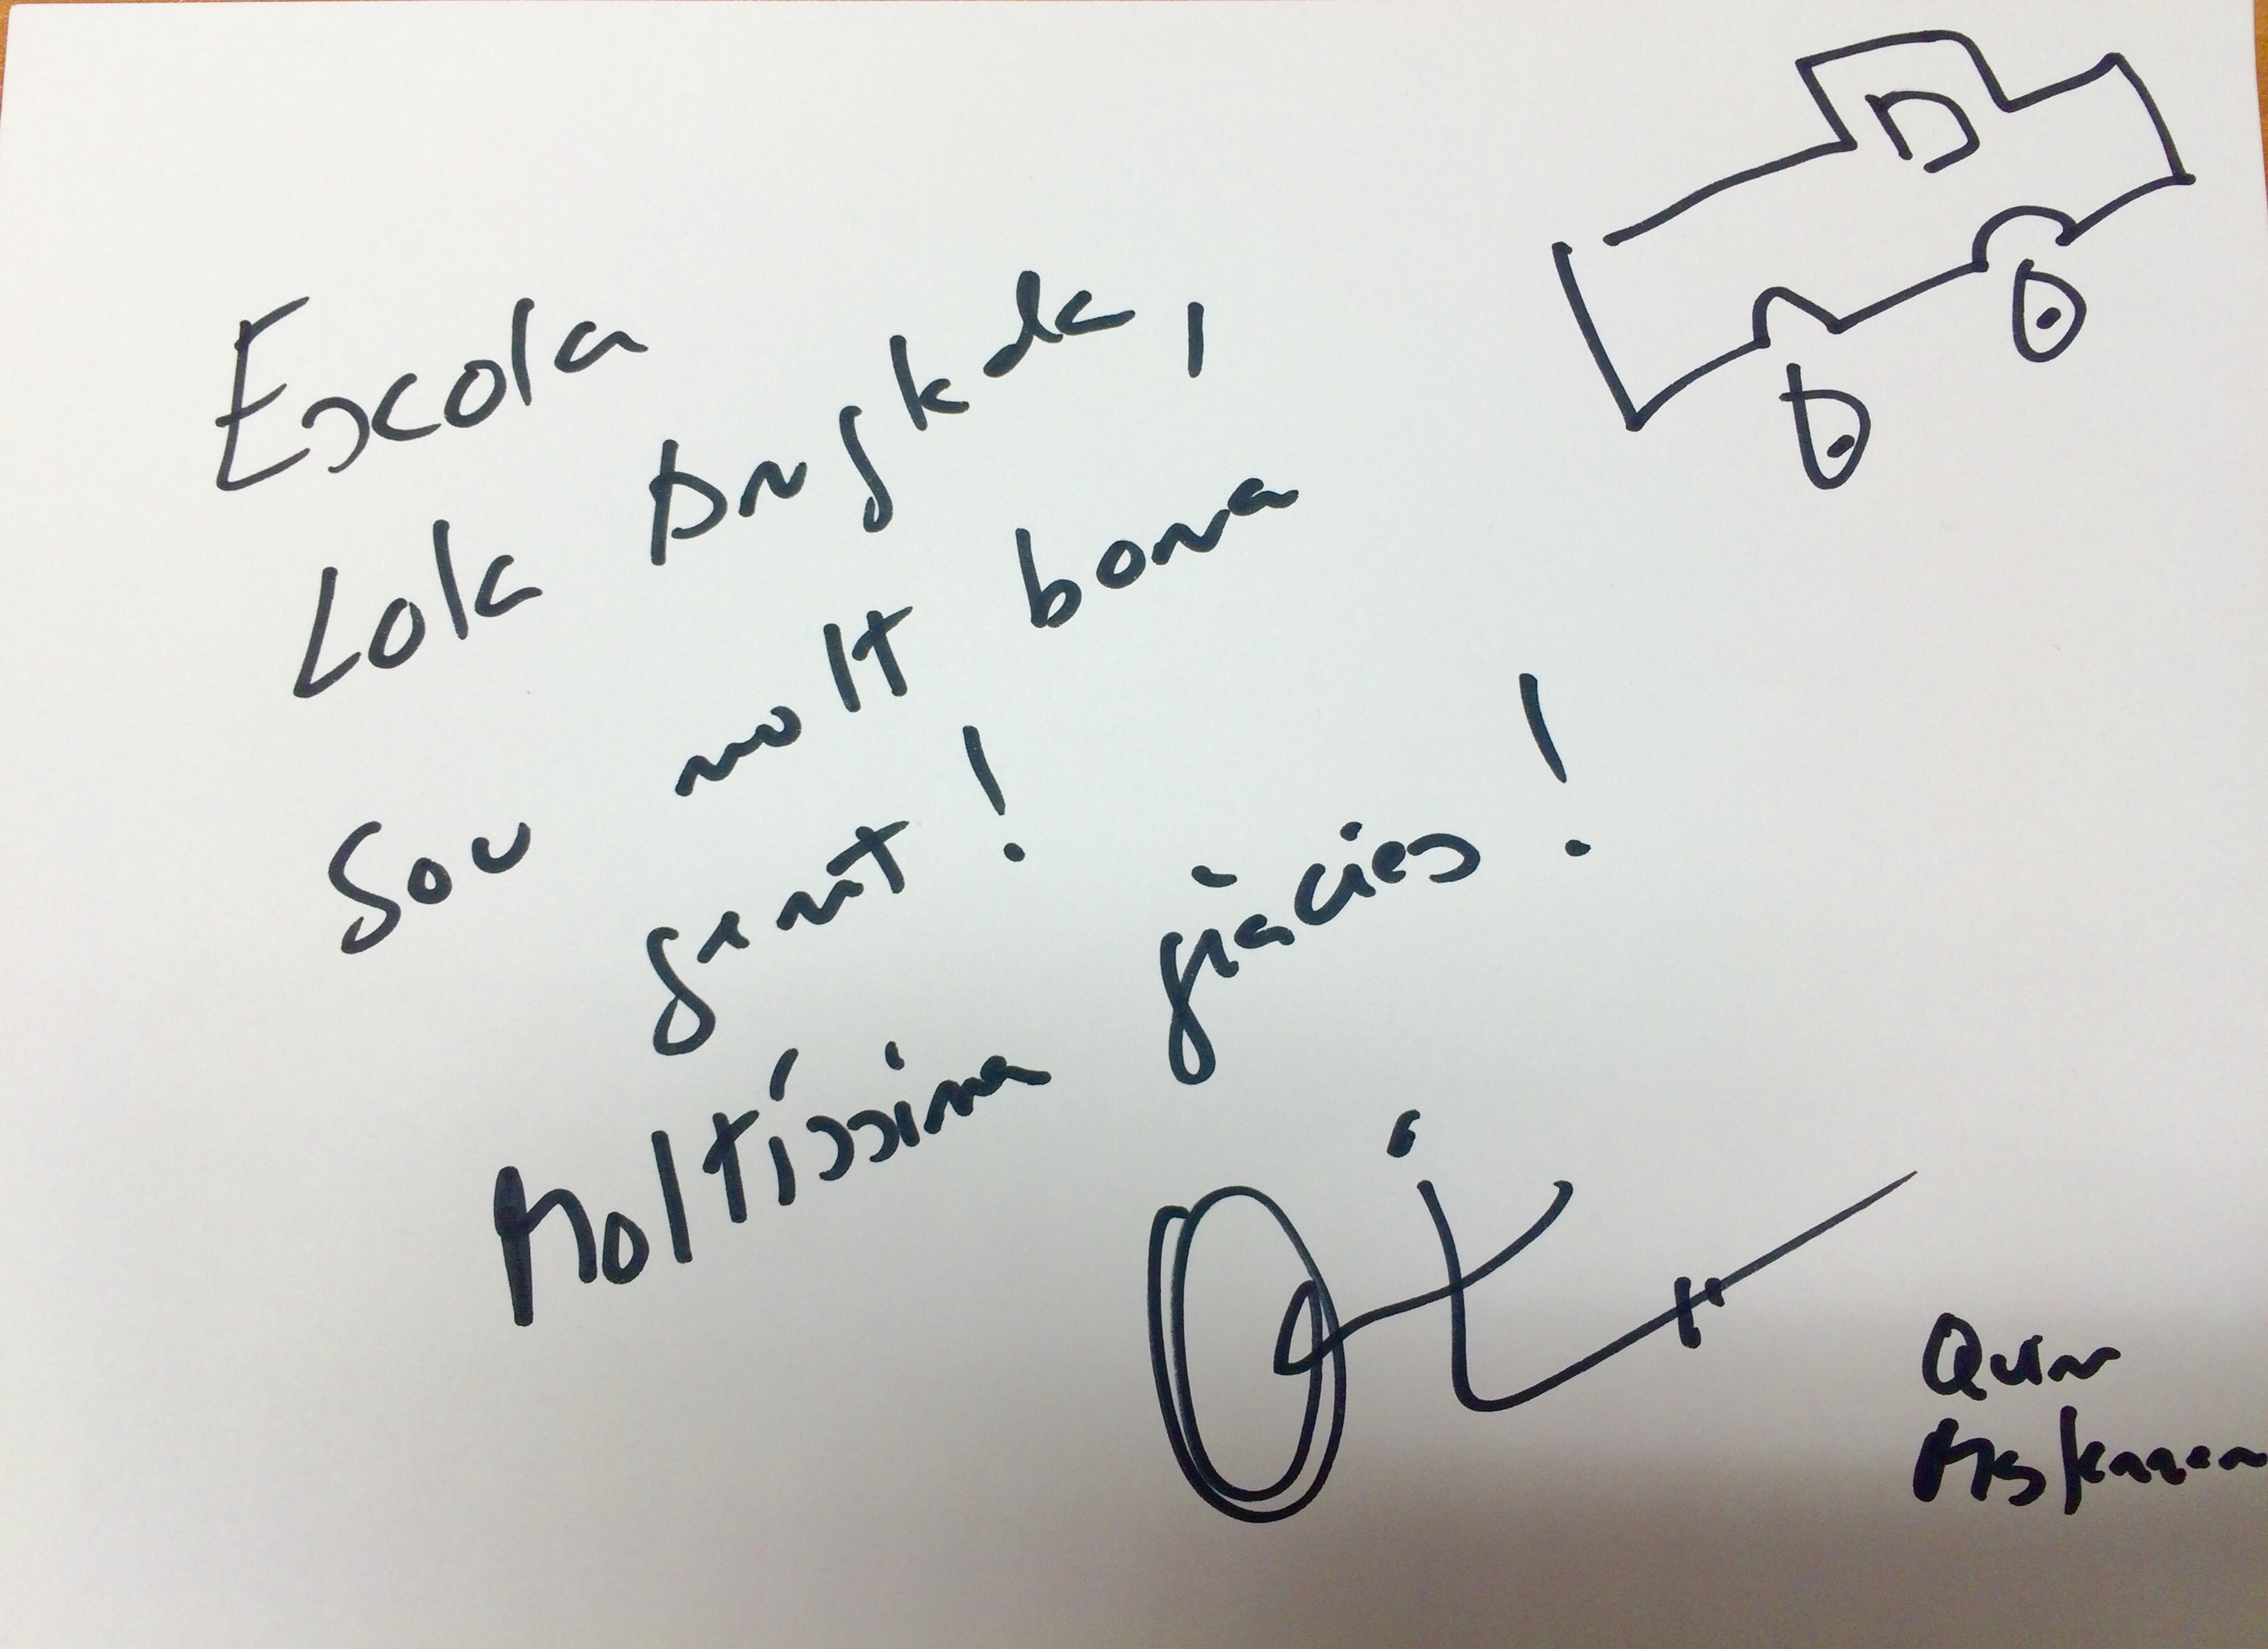 Escola
Lola Anglada,
Sou molt bona
gent!
Moltíssima gràcies!
Quim
Masferrer